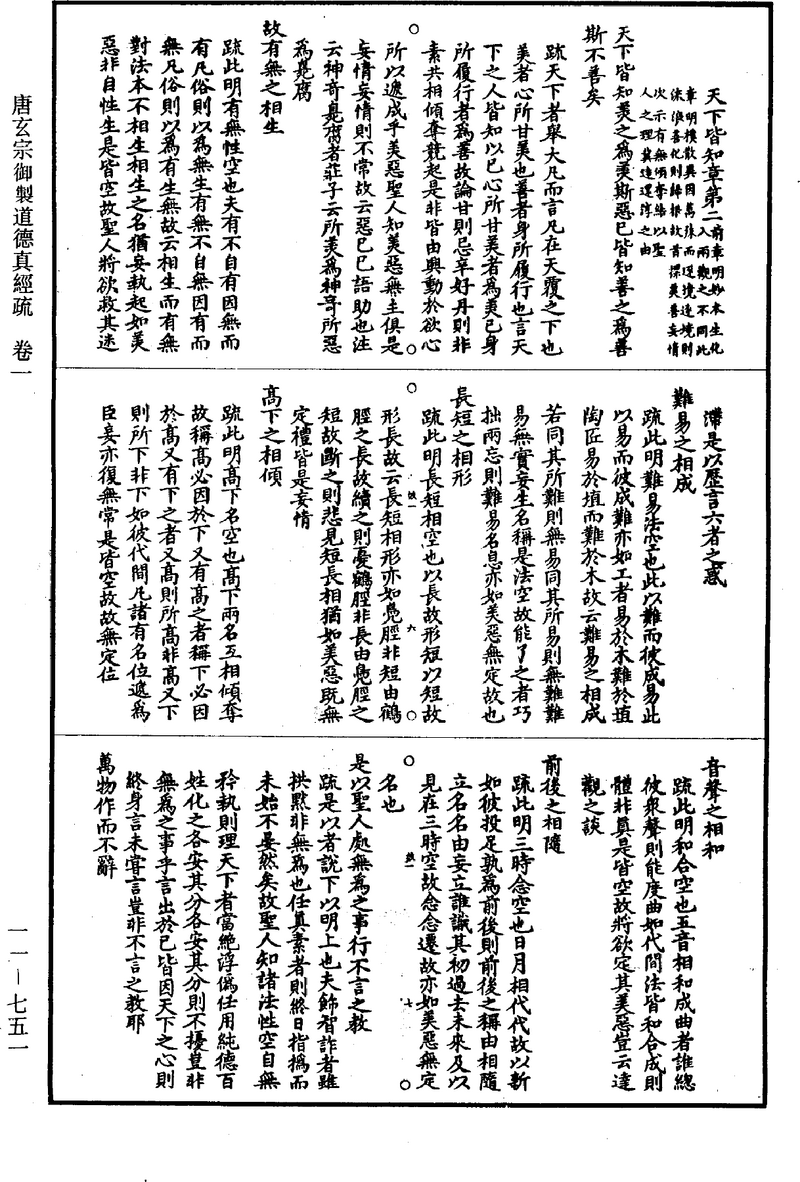 天下皆知章第二
前章明妙本生化
入兩觀之不同此
章明樸散異因萬殊而逐境逐境則
流浪善化則歸根故首摽美善妄情
次示有無傾奪結以聖
人之理冀達還淳之由
天下皆知美之為美斯惡已皆知善之為善
斯不善矣
疏天下者舉大凡而言凡在天覆之下也
美者心所甘美也善者身所履行也言天
下之人皆知以已心所甘美者為美已身
所履行者為善故論甘則忌辛好丹則非
素共相傾奪競起是非皆由興動於欲心
所以遞成乎美惡聖人知美惡無主俱是
妄情妄情則不常故云惡已已語助也注
云神奇臭腐者莊子云所美為神奇所惡
為臭腐
故有無之相生
疏此明有無性空也夫有不自有因無而
有凡俗則以為無生有無不自無因有而
無凡俗則以為有生無故云相生而有無
對法本不相生相生之名猶妄執起如美
惡非自性生是皆空故聖人將欲救其迷
滯是以歷言六者之惑
難易之相成
疏此明難易法空也此以難而彼成易此
以易而彼成難亦如工者易於木難於埴
陶匠易於埴而難於木故云難易之相成
若同其所難則無易同其所易則無難難
易無實妄生名稱是法空故能了之者巧
拙兩忘則難易名息亦如美惡無定故也
長短之相形
疏此明長短相空也以長故形短以短故
形長故云長短相形亦如鳧脛非短由鶴
脛之長故續之則憂鶴脛非長由鳧脛之
短故斷之則悲見短長相猶如美惡既無
定禮皆是妄情
高下之相傾
疏此明高下名空也高下兩名互相傾奪
故稱高必因於下又有高之者稱下必因
於高又有下之者又高則所高非高又下
則所下非下如彼代間凡諸有名位遞為
臣妾亦復無常是皆空故故無定位
音聲之相和
疏此明和合空也五音相和成曲者誰總
彼眾聲則能度曲如代間法皆和合成則
體非真是皆空故將欲定其美惡豈云達
觀之談
前後之相隨
疏此明三時念空也日月相代代故以新
如彼投足孰為前後則前後之稱由相隨
立名名由妄立誰識其初過去未來及以
見在三時空故念念遷故亦如美惡無定
名也
是以聖人處無為之事行不言之教
疏是以者說下以明上也夫飾智詐者雖
拱默非無為也任真素者則終日指撝而
未始不晏然矣故聖人知諸法性空自無
矜執則理天下者當絶浮偽任用純德百
姓化之各安其分各安其分則不擾豈非
無為之事乎言出於已皆因天下之心則
終身言未嘗言豈非不言之教耶
萬物作而不辭
唐玄宗御製道德真經疏　卷一
一一－七五一